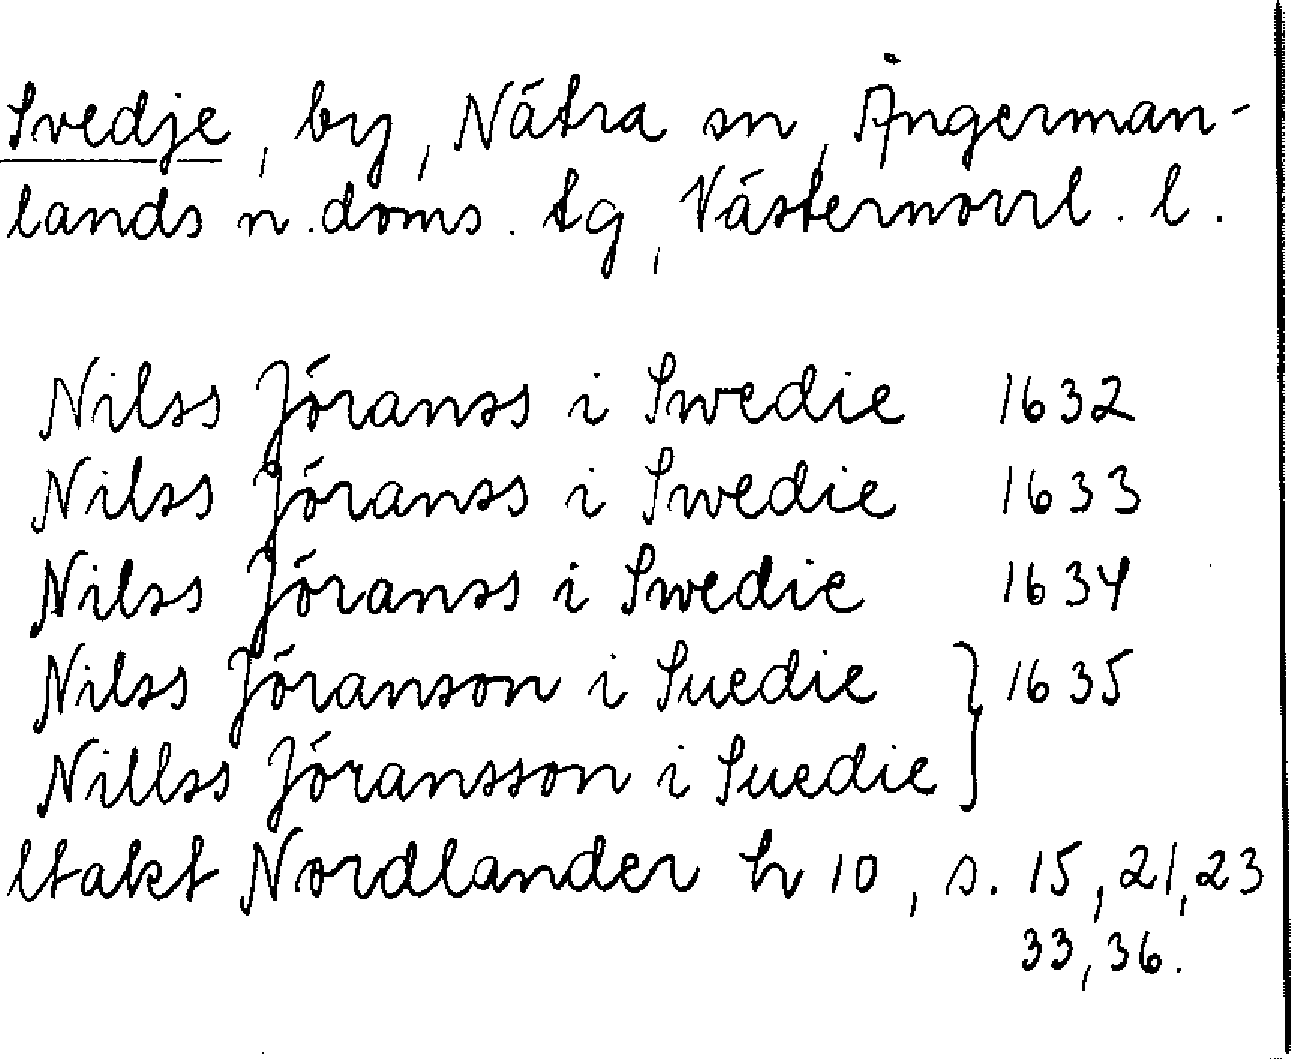 Svedje, by, Nätra sn, Ångerman-
lands n. doms. tg, Västernorrl. l.
Nilss Jöranss i Swedie 1632
Nilss Jöranss i Swedie 1633
Nilss Jöranss i Swedie 1634
Nilss Jöranson i Suedie } 1635
Nillss Jöransson i Suedie
ltakt Nordlander h 10, s. 15, 21, 23
33, 36.